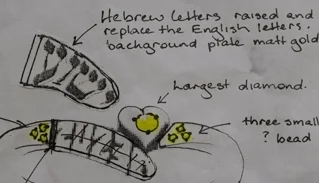 Hebrew letters raised and
replace the English letters.
background plate matt gold
Largest diamond.
three small
? bead